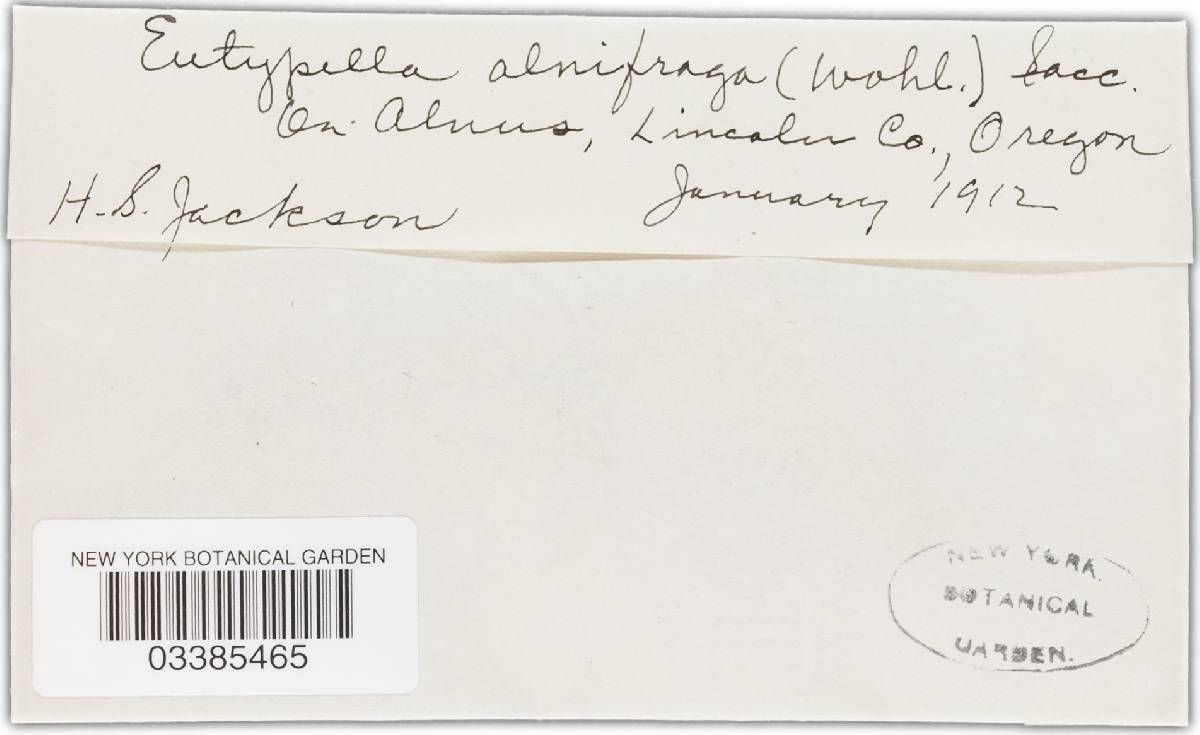 Eutypella alnifraga (Wahl.) Sacc.
On Alnus, Lincoln Co., Oregon
H. S. Jackson January 1912
NEW YORK BOTANICAL GARDEN
03385465
NEW YORK
BOTANICAL
GARDEN.